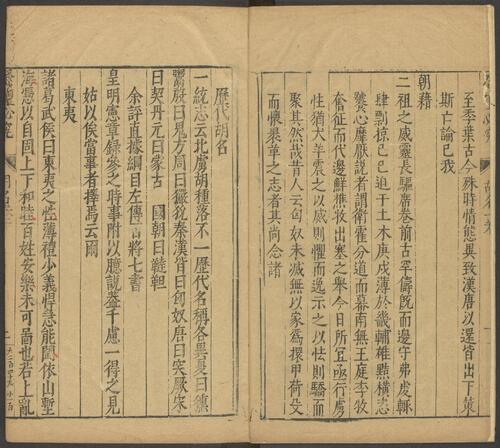 至季葉古今殊時情態異致漢唐以還皆出下策
斯亡論已我
朝藉
二祖之威靈長驅席卷前古罕儔旣而邊守弗虔輒
肆剽掠已巳迫于土木庚戌薄於畿輔雄黠橫恣
饕心靡厭說者謂衛霍分道而幕南無王庭李牧
奮征而代邊鮮樵牧出塞之舉今日所宜亟行虜
性猶犬羊震之以威則懼而逃示之以怯則驕而
聚其然哉昔人云匈奴未滅無以家爲擐甲荷殳
而懷裹革之志者其尚念諸
歷代胡名
一統志云北虜胡種落不一歷代名稱各異夏曰獯
鬻殷曰鬼方周曰玁狁秦漢皆曰匈奴唐曰突厥宋
曰契丹元曰蒙古 國朝曰韃靼
余評直據綱目左傳百將七書
皇明憲章錄參之時事附以臆說葢千慮一得之見
姑以俟當事者擇焉云爾
東夷
諸葛武侯曰東夷之性薄禮少義悍急能鬬依山塹
海憑以自固上下和睦百姓安樂未可圖也若上亂